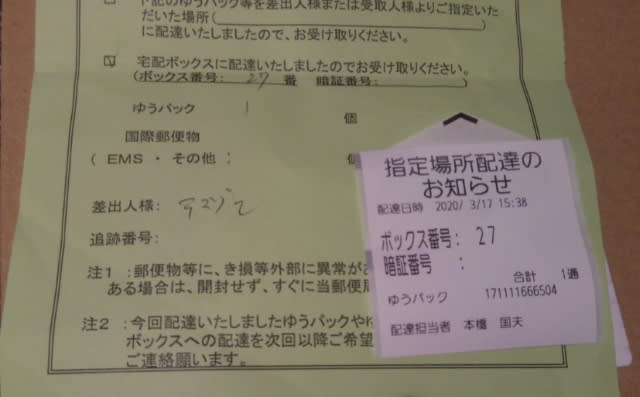 下記のゆうパック等を差出人様または受取人様よりご指定いた
だいた場所(
に配達いたしましたので、お受け取りください。
宅配ボックスに配達いたしましたのでお受け取りください。
(ボックス番号: 27 番 暗証番号: )
ゆうパック 1 個
国際郵便物
( EMS ・ その他 : 個
差出人様: アマゾン
追跡番号:
注1 :郵便物等に、き損等外部に異常が
ある場合は、開封せず、すぐに当郵便
注2 :今回配達いたしましたゆうパックや
ボックスへの配達を次回以降ご希望
ご連絡願います。
指定場所配達の
お知らせ
配達日時 2020/ 3/17 15:38
ボックス番号: 27
暗証番号 :
合計 1通
ゆうパック 171111666504
配達担当者 本橋 国夫